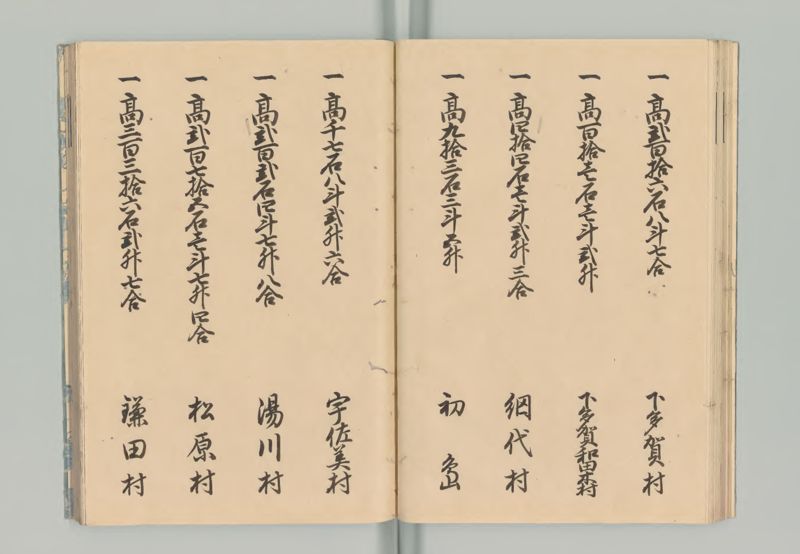 一高弐百拾六石八斗七合 下多賀村
一高百拾壱石壱斗弐升 下多賀和田木村
一高四拾四石壱斗弐升三合 網代村
一高九拾三石三斗五升 初島
一高千七石八斗弐升六合 宇佐美村
一高弐百弐石四斗七升八合 湯川村
一高弐百七拾五石壱斗七升四合 松原村
一高三百三拾六石弐升七合 鎌田村